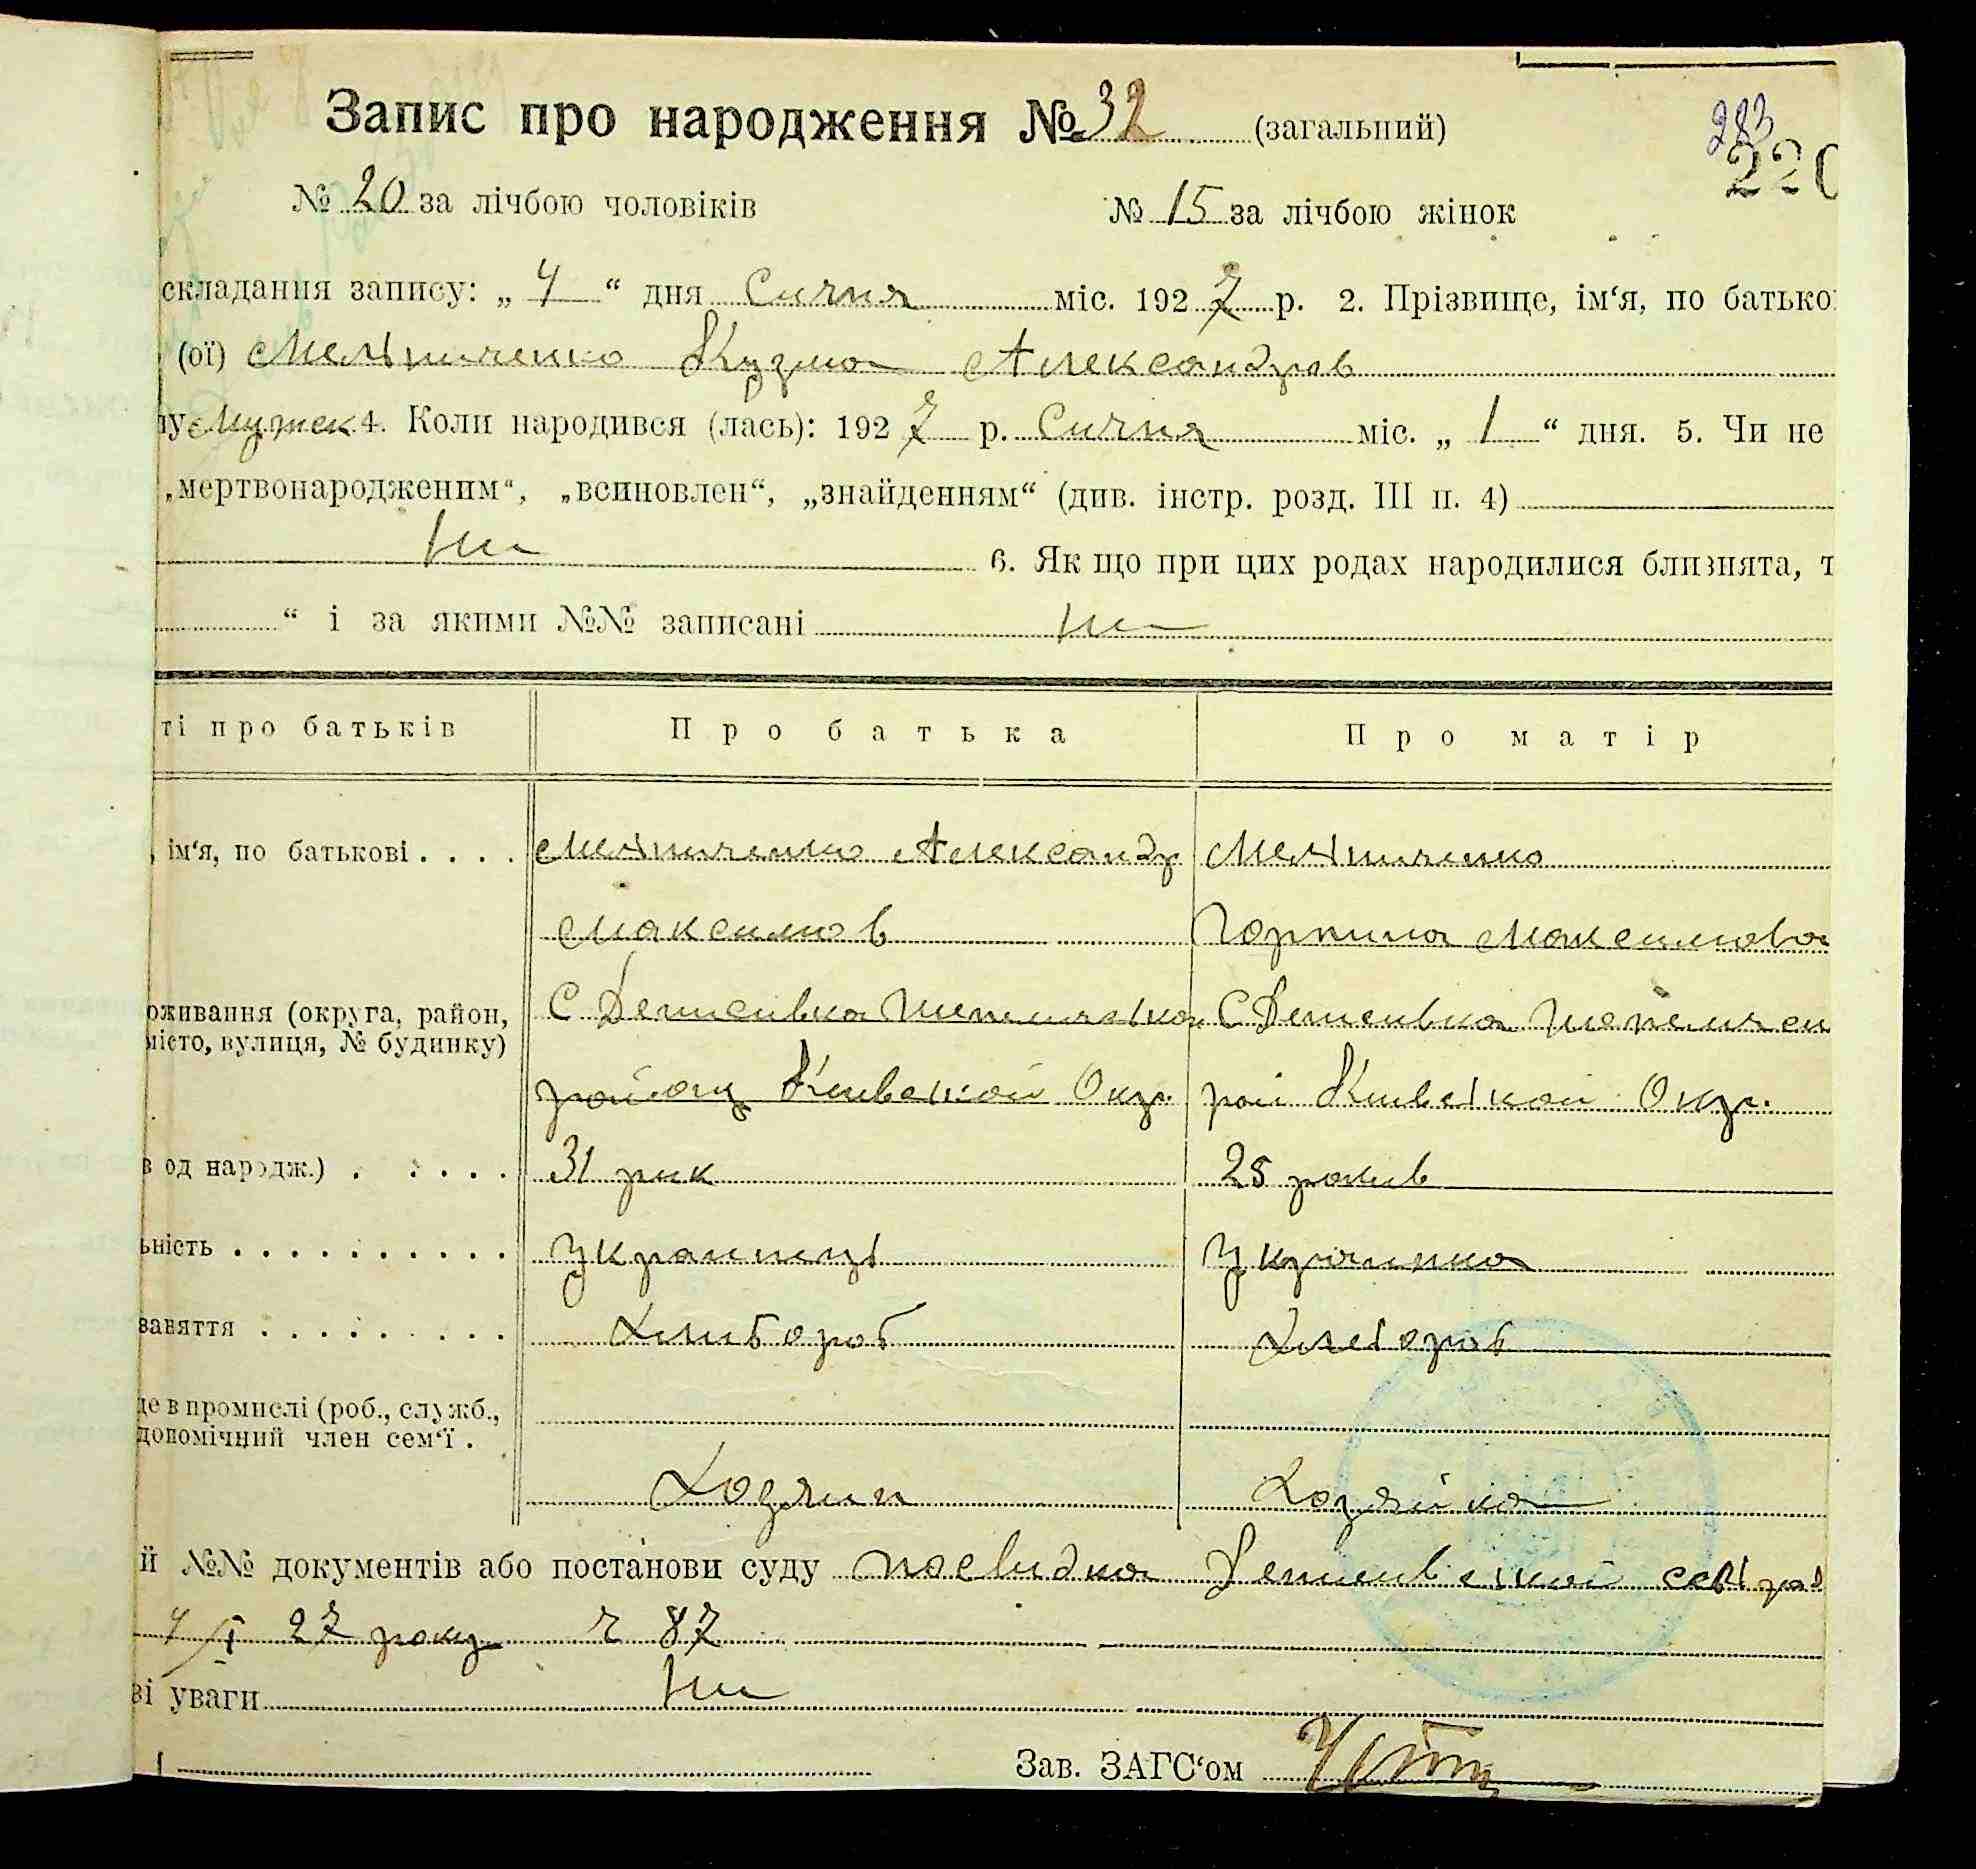 Запис про народження № 32 (загальний)
283
220
№ 20 за лічбою чоловіків № 15 за лічбою жінок
складання запису: „ 4 “ дня Сичня міс. 192 7 р. 2. Прізвище, ім‘я, по батько
(ої) Мельниченко Кузма Александров
лу Мужск 4. Коли народився (лась): 192 7 р. Сичня міс. „ 1 “ дня. 5. Чи не
„мертвонародженим“, „всиновлен“, „знайденням“ (див. інстр. розд. III п. 4)
Ни 6. Як що при цих родах народилися близнята, т
“ і за якими №№ записані Ни
ті про батьків Про батька Про матір
, ім‘я, по батькові . . . . Мельниченко Александр Мельниченко
Максимов Горпина Максимова
оживання (округа, район, С Денисивка С Денисивка
місто, вулиця, № будинку)
району Киевской Окр. рай Киевской Окр.
в од народж.) . . . . . 31 рик 25 рокив
ьність . . . . . . . . . . Украинець Украинка
заняття . . . . . . . . . Хлибороб Хлебороб
де в промислі (роб., служб.,
допомічний член сем‘ї .
Хозяин Хозяйка
й №№ документів або постанови суду посвидка Денисивской сель рад
4/I 27 року ч 87
ві уваги Ни
Зав. ЗАГС‘ом